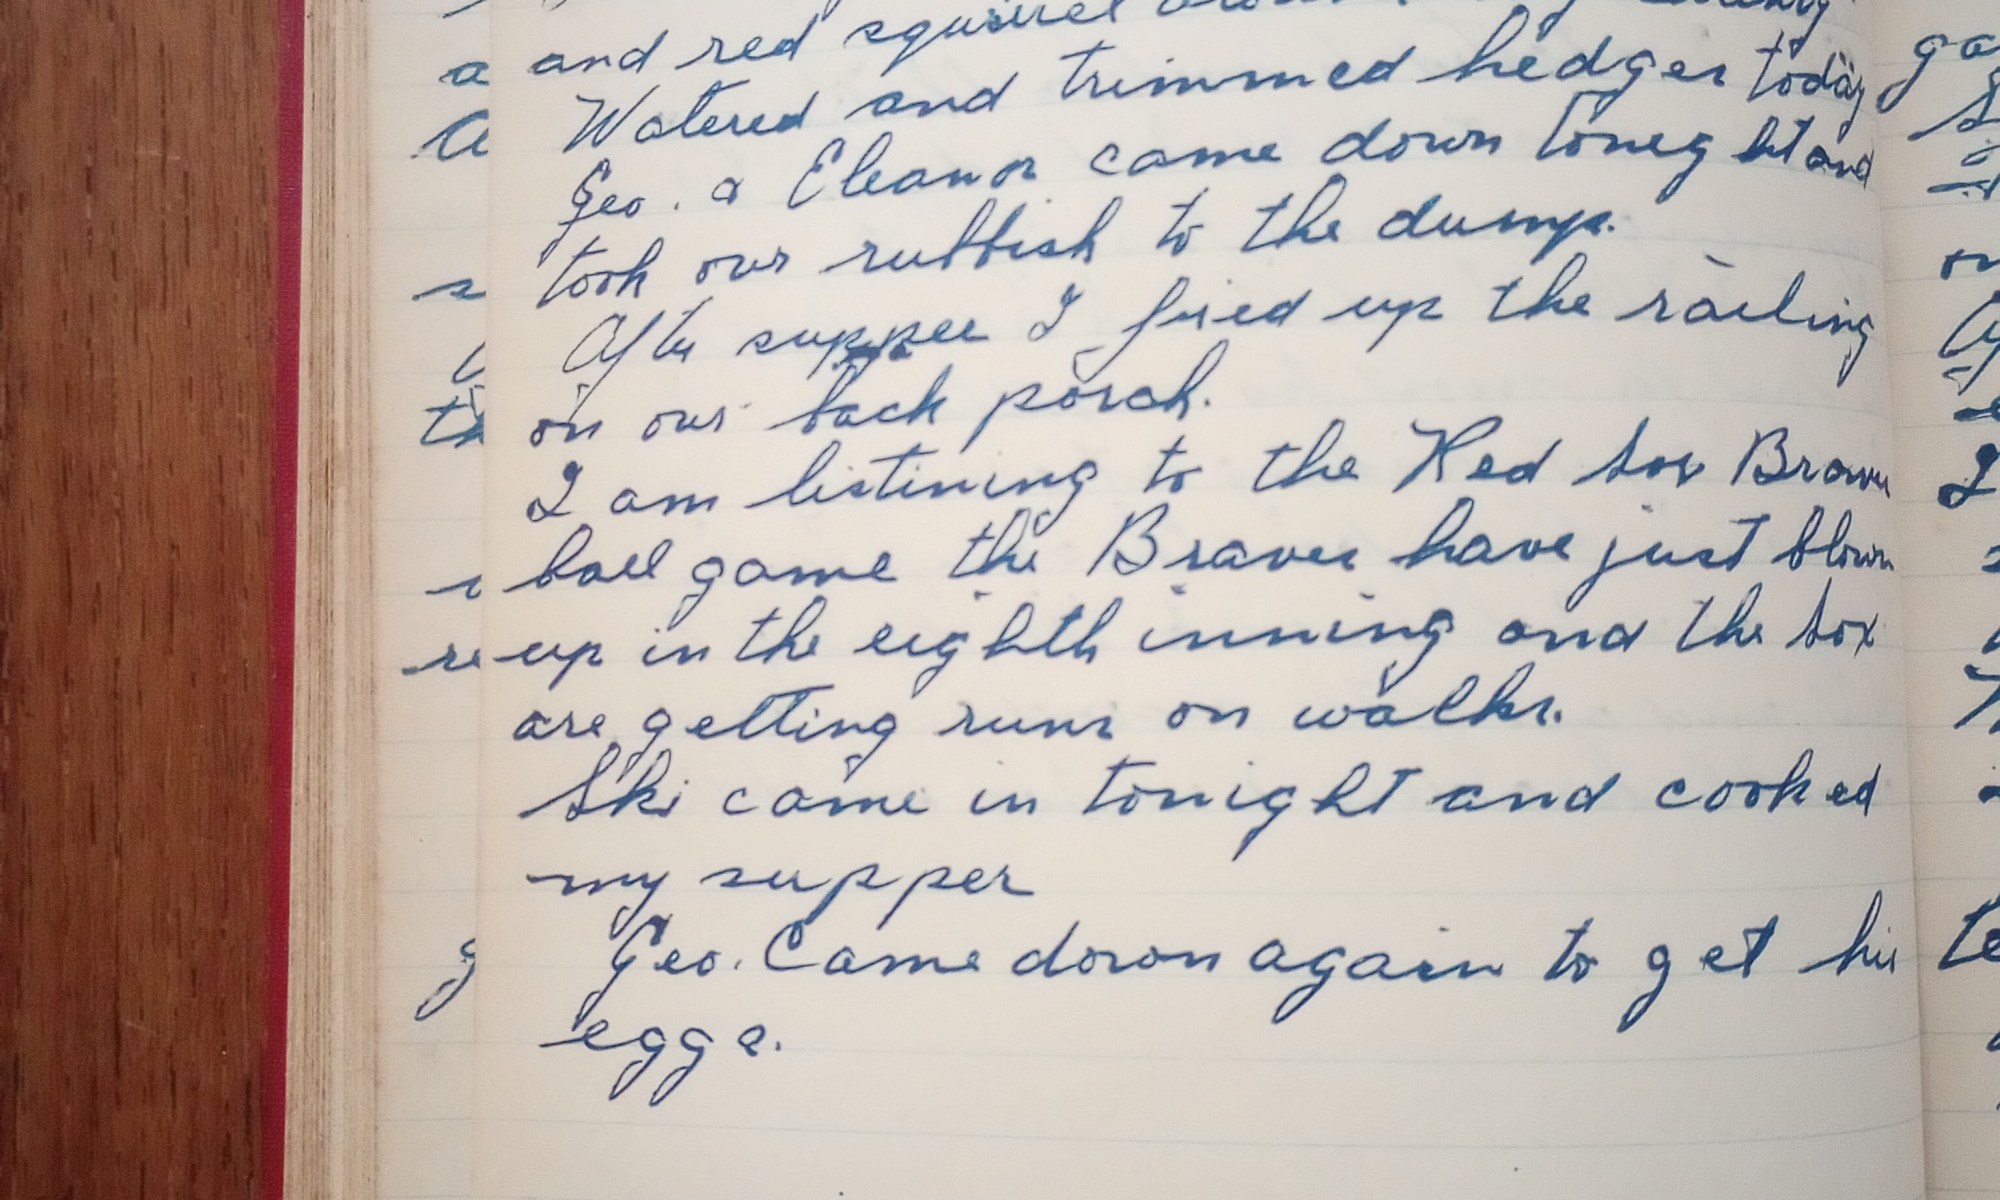 and red squirrel
Watered and trimmed hedges today
Geo. & Eleanor came down tonight and
took our rubbish to the dump.
After supper I fixed up the railing
on our back porch.
I am listining to the Red Sox Braves
ball game the Braves have just blown
up in the eighth inning and the Sox
are getting runs on walks.
Ski came in tonight and cooked
my supper
Geo. Came down again to get his
eggs.